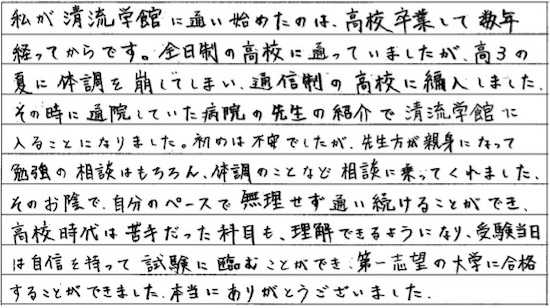 私が清流学館に通い始めたのは、高校卒業して数年
経ってからです。全日制の高校に通っていましたが、高3の
夏に体調を崩してしまい、通信制の高校に編入しました。
その時に通院していた病院の先生の紹介で清流学館に
入ることになりました。初めは不安でしたが、先生方が親身になって
勉強の相談はもちろん、体調のことなど相談に乗ってくれました。
そのお陰で、自分のペースで無理せず通い続けることができ、
高校時代は苦手だった科目も、理解できるようになり、受験当日
は自信を持って試験に臨むことができ、第一志望の大学に合格
することができました。本当にありがとうございました。